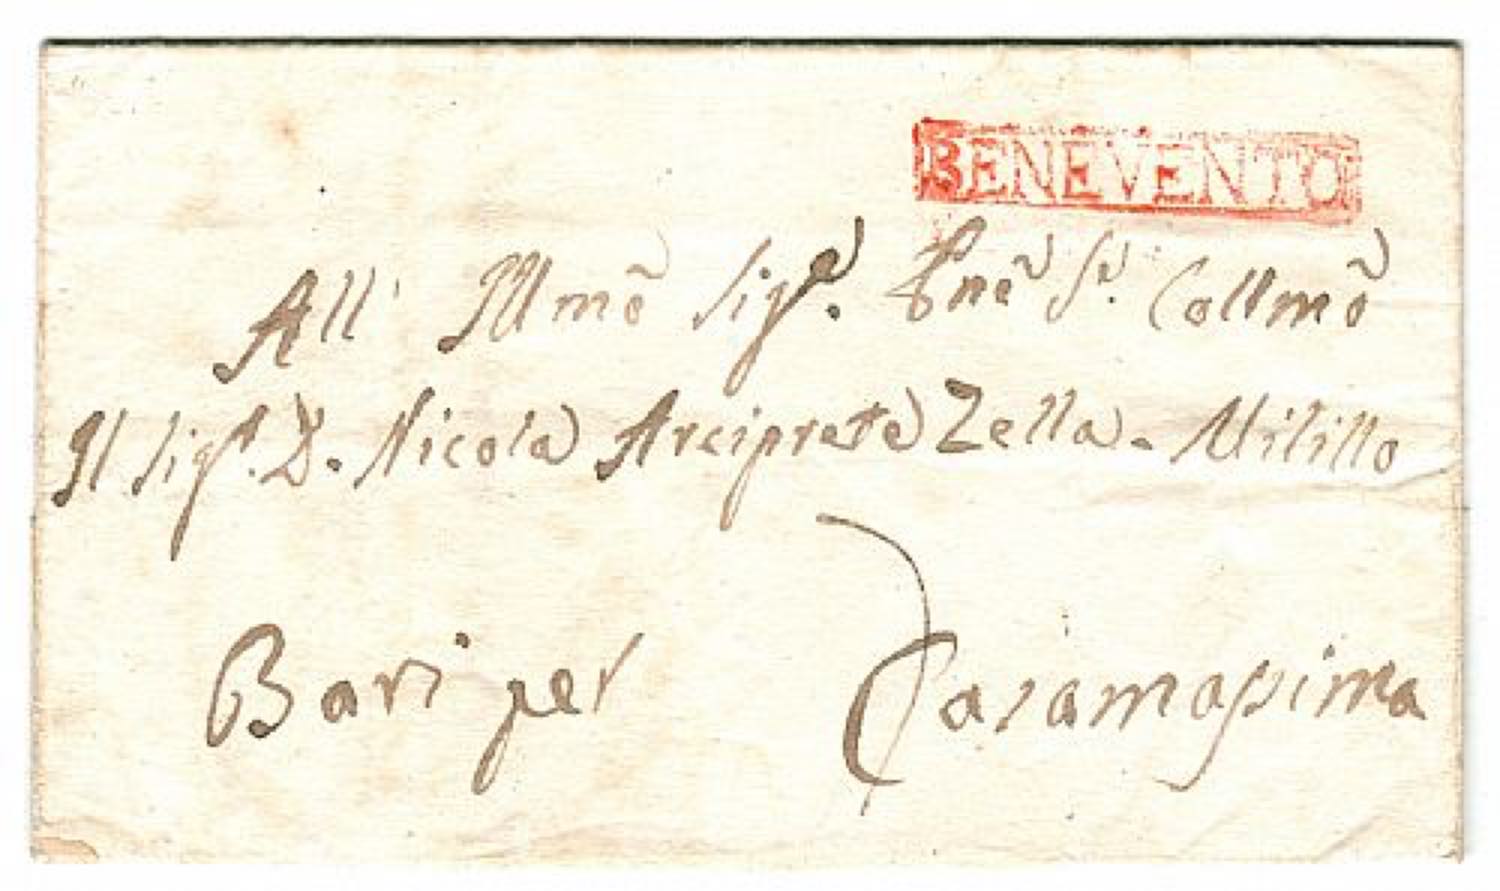 BENEVENTO
All' Illmõ Sigr. Pnẽ Sr. Collmõ
Il Sigr. D. Nicola Arciprete Zella-Milillo
Bari per Casamassima